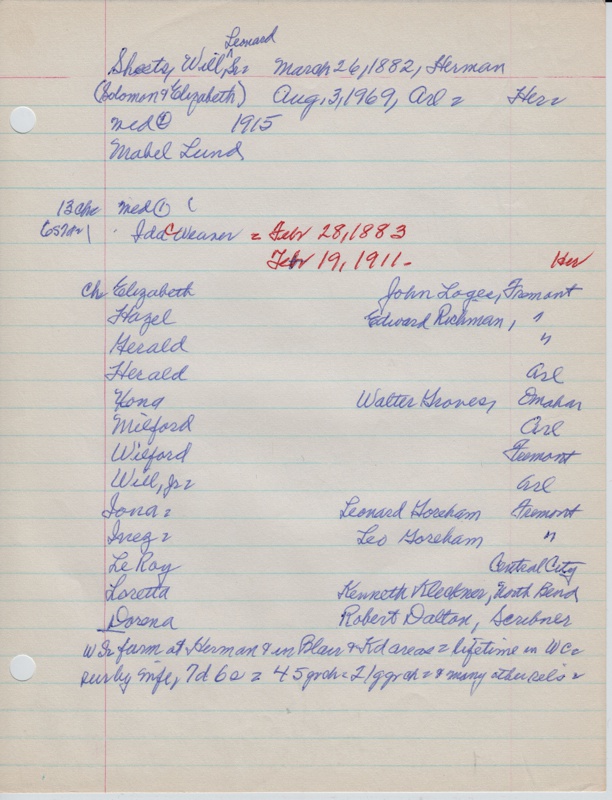 Leonard
Sheets, Will, Sr = March 26, 1882, Herman
(Solomon & Elizabeth) Aug, 3, 1969, Arl = Her =
med ② 1915
Mabel Lund
13 chr med ① (
6s 7d Ida C Weaver = Febr 28, 1883
Febr 19, 1911- Her
ch Elizabeth John Loges, Fremont
Hazel Edward Richman, "
Gerald "
Herald Arl
Yona Walter Groves, Omaha
Milford Arl
Wilford Fremont
Will, Jr = Arl
Iona = Leonard Goreham Fremont
Inez = Leo Goreham "
Le Roy Central City
Loretta Kenneth Kleckner, North Bend
Dorena Robert Dalton, Scribner
W Sr farm at Herman & in Blair & Kd areas = lifetime in WC =
sur by wife, 7d 6s = 45 grch = 21 ggrch = & many other rels =